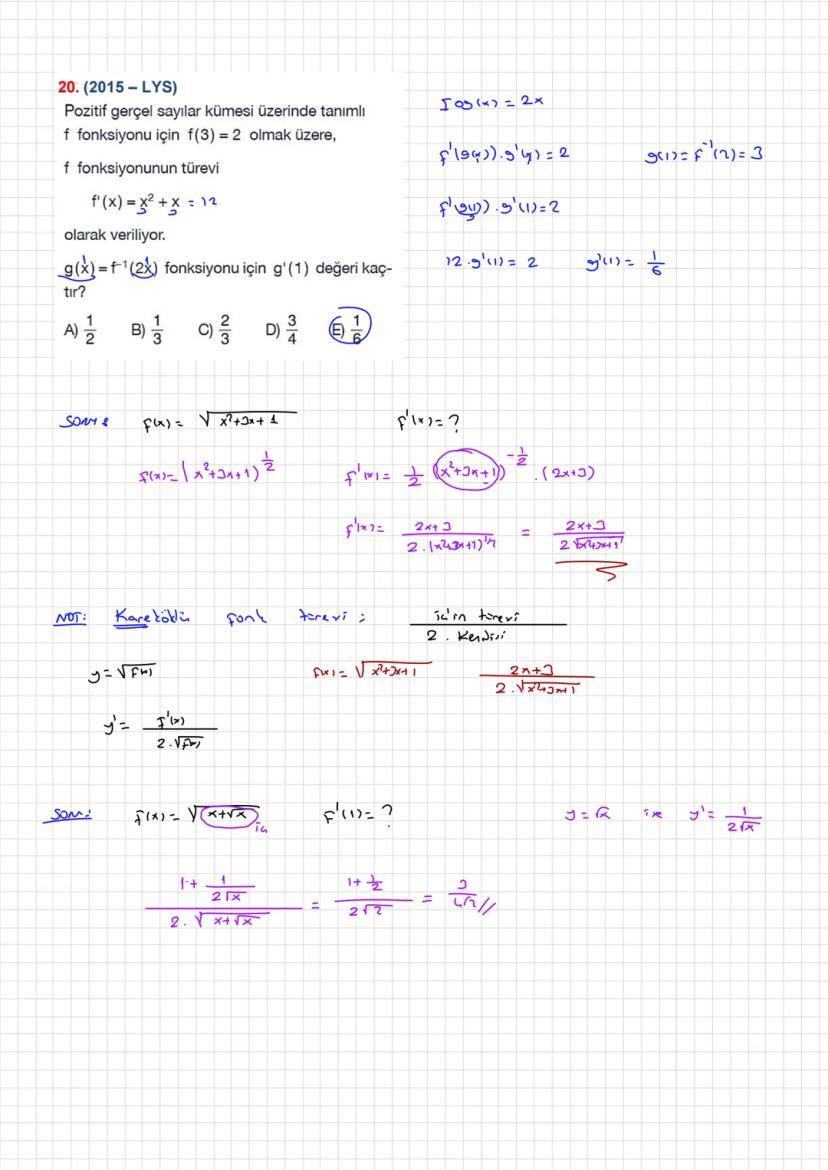 20. (2015 – LYS)
Pozitif gerçel sayılar kümesi üzerinde tanımlı
f fonksiyonu için f(3) = 2 olmak üzere,
f fonksiyonunun türevi
f'(x) = x² + x = 12
3 3
olarak veriliyor.
1 1
g(x) = f⁻¹(2x) fonksiyonu için g'(1) değeri kaç-
tır?
A) 1/2 B) 1/3 C) 2/3 D) 3/4 E) 1/6
fog(x) = 2x
f'(g(x)).g'(x) = 2 g(1) = f⁻¹(2) = 3
f'(g(1)).g'(1) = 2
3
12.g'(1) = 2 g'(1) = 1/6
SORU: f(x) = √(x²+3x+1) f'(x) = ?
f(x) = (x²+3x+1)^(1/2) f'(x) = 1/2 (x²+3x+1)^(-1/2) . (2x+3)
f'(x) = (2x+3)/(2.(x²+3x+1)^(1/2)) = (2x+3)/(2√(x²+3x+1))
NOT: Kareköklü fonk türevi: için türevi / 2 . Kendisi
y = √f(x) f(x) = √(x²+3x+1) (2x+3)/(2.√(x²+3x+1))
y' = f'(x)/(2.√f(x))
SORU: f(x) = √(x+√x) f'(1) = ? y = √x ise y' = 1/(2√x)
iç
(1+ 1/(2√x))/(2.√(x+√x)) = (1+ 1/2)/(2√2) = 3/(4√2) //